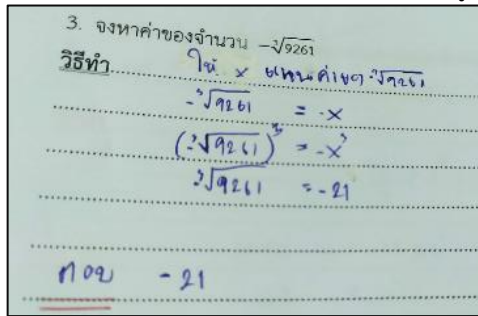 3. จงหาค่าของจำนวน -∛9261
วิธีทำ ให้ x แทนค่าของ -∛9261
-∛9261 = -x
(-∛9261)³ = -x³
∛9261 = -21
ตอบ -21